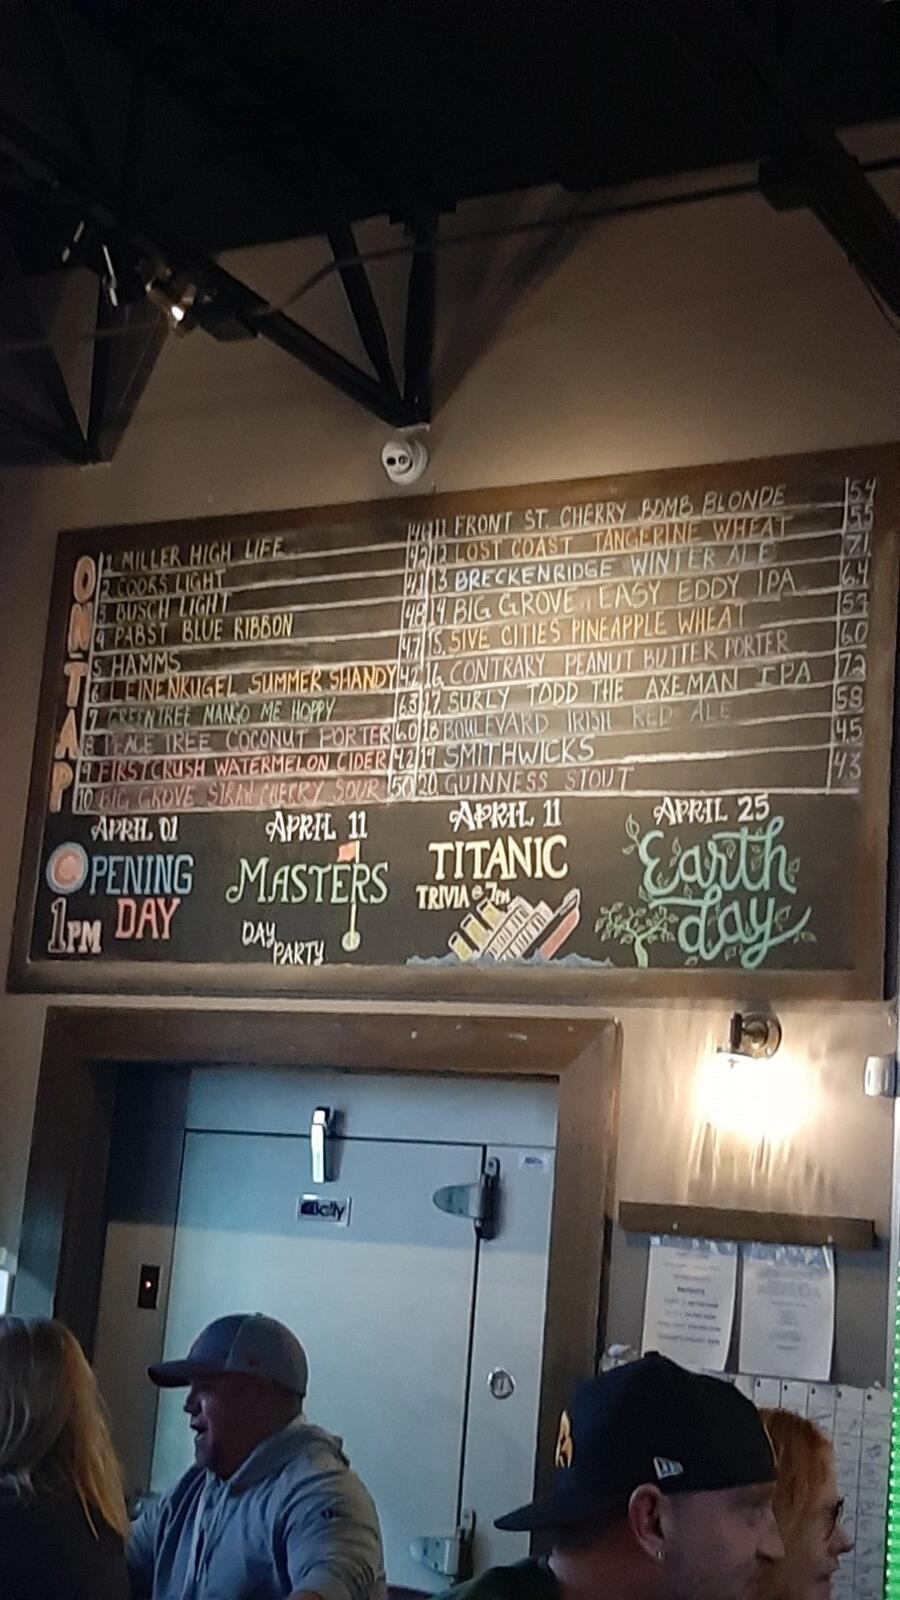 ON TAP
1 MILLER HIGH LIFE 4.6
2 COORS LIGHT 4.2
3 BUSCH LIGHT 4.1
4 PABST BLUE RIBBON 4.8
5 HAMMS 4.7
6 LEINENKUGEL SUMMER SHANDY 4.2
7 GREENTREE MANGO ME HOPPY 6.3
8 PEACE TREE COCONUT PORTER 6.0
9 FIRSTCRUSH WATERMELON CIDER 4.2
10 BIG GROVE STRAWCHERRY SOUR 5.0
11 FRONT ST. CHERRY BOMB BLONDE 5.4
12 LOST COAST TANGERINE WHEAT 5.5
13 BRECKENRIDGE WINTER ALE 7.1
14 BIG GROVE EASY EDDY IPA 6.4
15. 5IVE CITIES PINEAPPLE WHEAT
16. CONTRARY PEANUT BUTTER PORTER 6.0
17. SURLY TODD THE AXEMAN IPA 7.2
18 BOULEVARD IRISH RED ALE 5.8
19 SMITHWICKS 4.5
20. GUINNESS STOUT 4.3
APRIL 01
OPENING DAY
1PM
APRIL 11
MASTERS
DAY PARTY
APRIL 11
TITANIC
TRIVIA @ 7PM
APRIL 25
Earth day
Bally